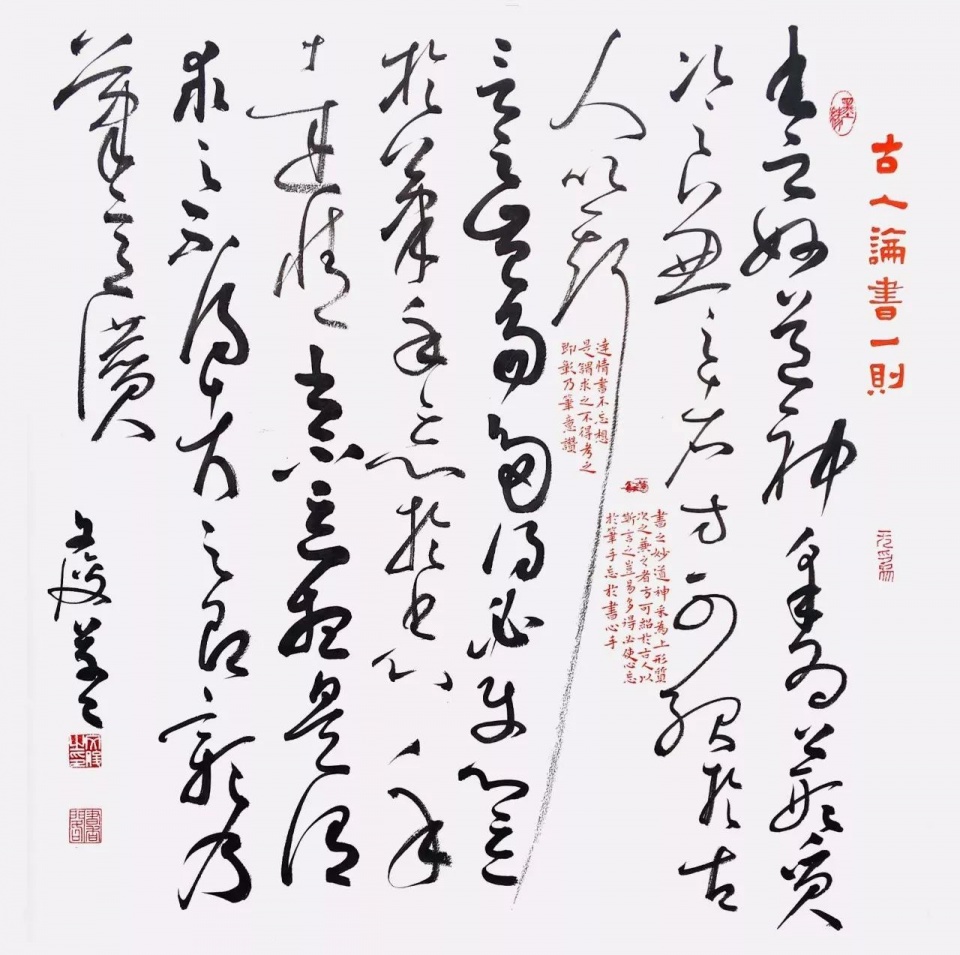 古人論書一則
書之妙道神采為上形質
次之兼之者方可紹於古
人以斯
言之豈易多得必使心忘
於筆手忘於書心手
達情書不忘想是謂
求之不得考之即彰乃
筆意讚
書之妙道神采為上形質
次之兼之者方可紹於古人以
斯言之豈易多得必使心忘
於筆手忘於書心手
達情書不忘想
是謂求之不得考之
即彰乃筆意讚